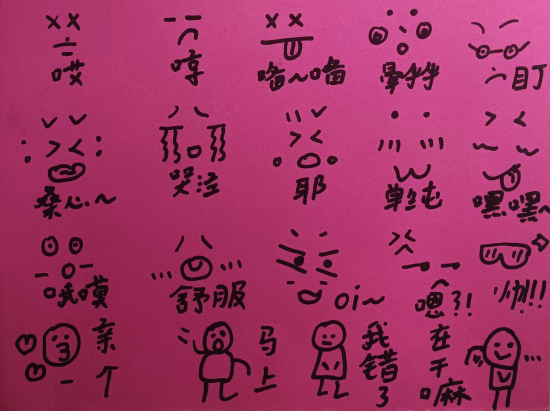 哎
哼
喵~喵
晕乎乎
盯
桑心~
哭泣
耶
单纯
嘿嘿~
哦嗼
舒服
oi~
嗯?!
帅!!!
亲
一个
马
上
我
错
了
在
干
嘛